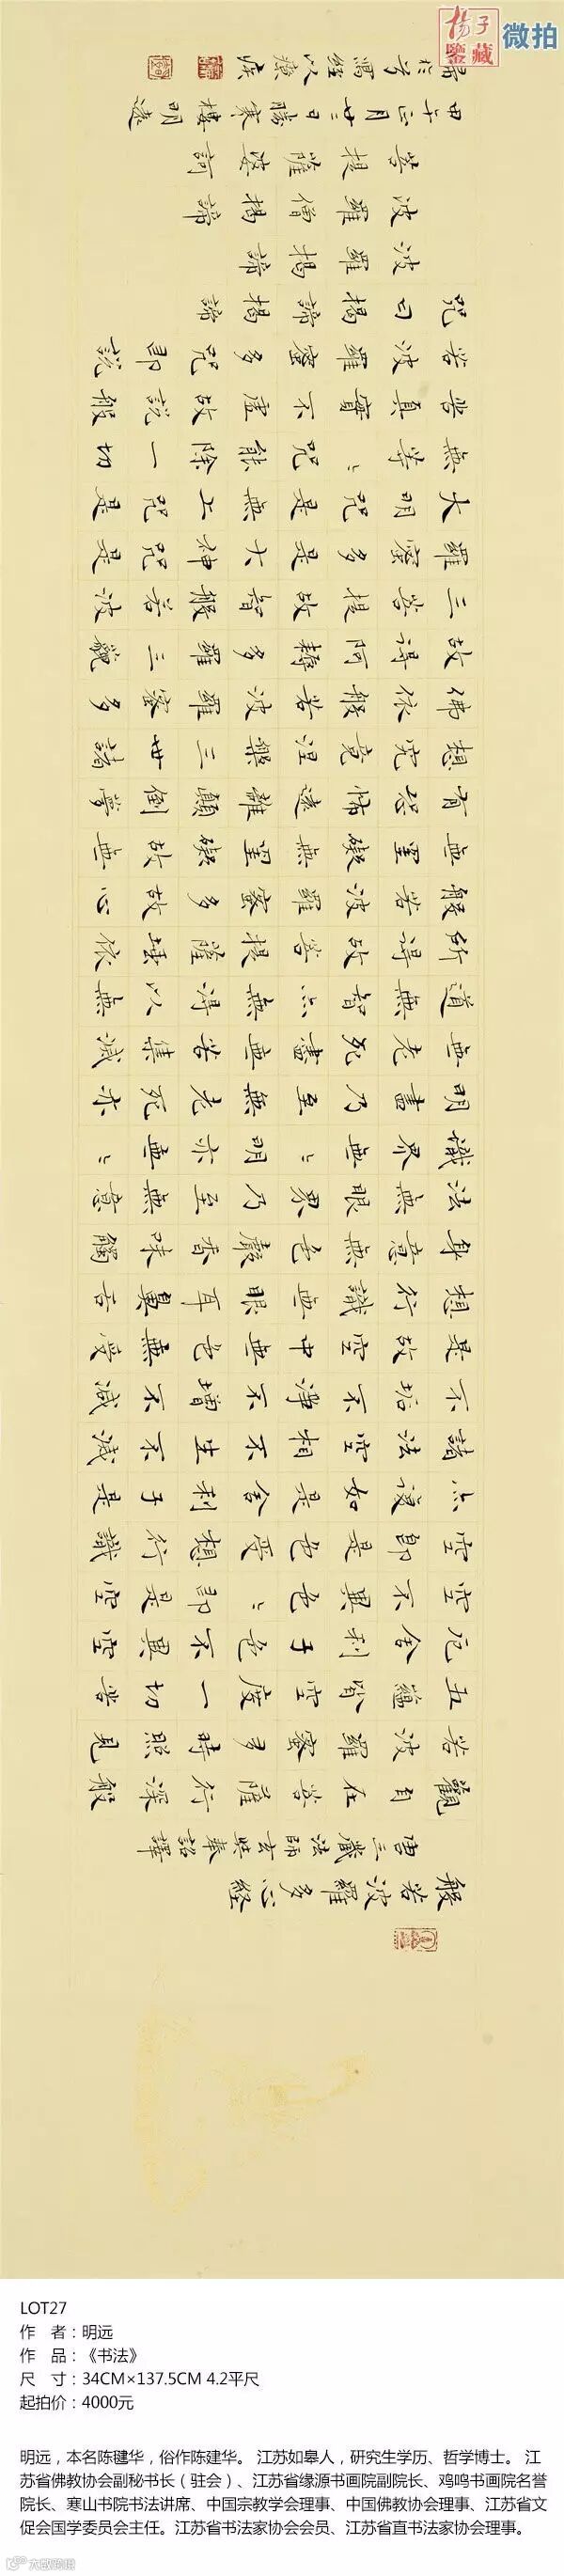 般若波羅多心経
唐三藏法師玄奘奉詔譯
觀自在菩薩行深般
若波羅蜜多時照見
五蘊皆空度一切苦
厄舍利子色不異空
空不異色〻即是空
空即是色受想行識
亦復如是舍利子是
諸法空相不生不滅
不垢不淨不增不減
是故空中無色無受
想行識無眼耳鼻舌
身意無色聲香味觸
法無眼界乃至無意
識界無〻明亦無〻
明盡乃至無老死亦
無老死盡無苦集滅
道無智亦無得以無
所得故菩提薩埵依
般若波羅蜜多故心
無罣礙無罣礙故無
有恐怖遠離顛倒夢
想究竟涅槃三世諸
佛依般若波羅蜜多
故得阿耨多羅三藐
三菩提故智般若波
羅蜜多是大神咒是
大明咒是無上咒是
無等〻咒能除一切
苦真實不虛故說般
若波羅蜜多咒即說
咒曰揭諦揭諦
波羅揭諦
波羅僧揭諦
菩提薩婆訶
甲午正月廿三日勝寒樓明遠
寫經以療疾
杨子鉴藏 微拍
LOT27
作 者：明远
作 品：《书法》
尺 寸：34CM×137.5CM 4.2平尺
起拍价：4000元
明远，本名陈毽华，俗作陈建华。 江苏如皋人，研究生学历、哲学博士。 江
苏省佛教协会副秘书长（驻会）、江苏省缘源书画院副院长、鸡鸣书画院名誉
院长、寒山书院书法讲席、中国宗教学会理事、中国佛教协会理事、江苏省文
促会国学委员会主任。江苏省书法家协会会员、江苏省直书法家协会理事。